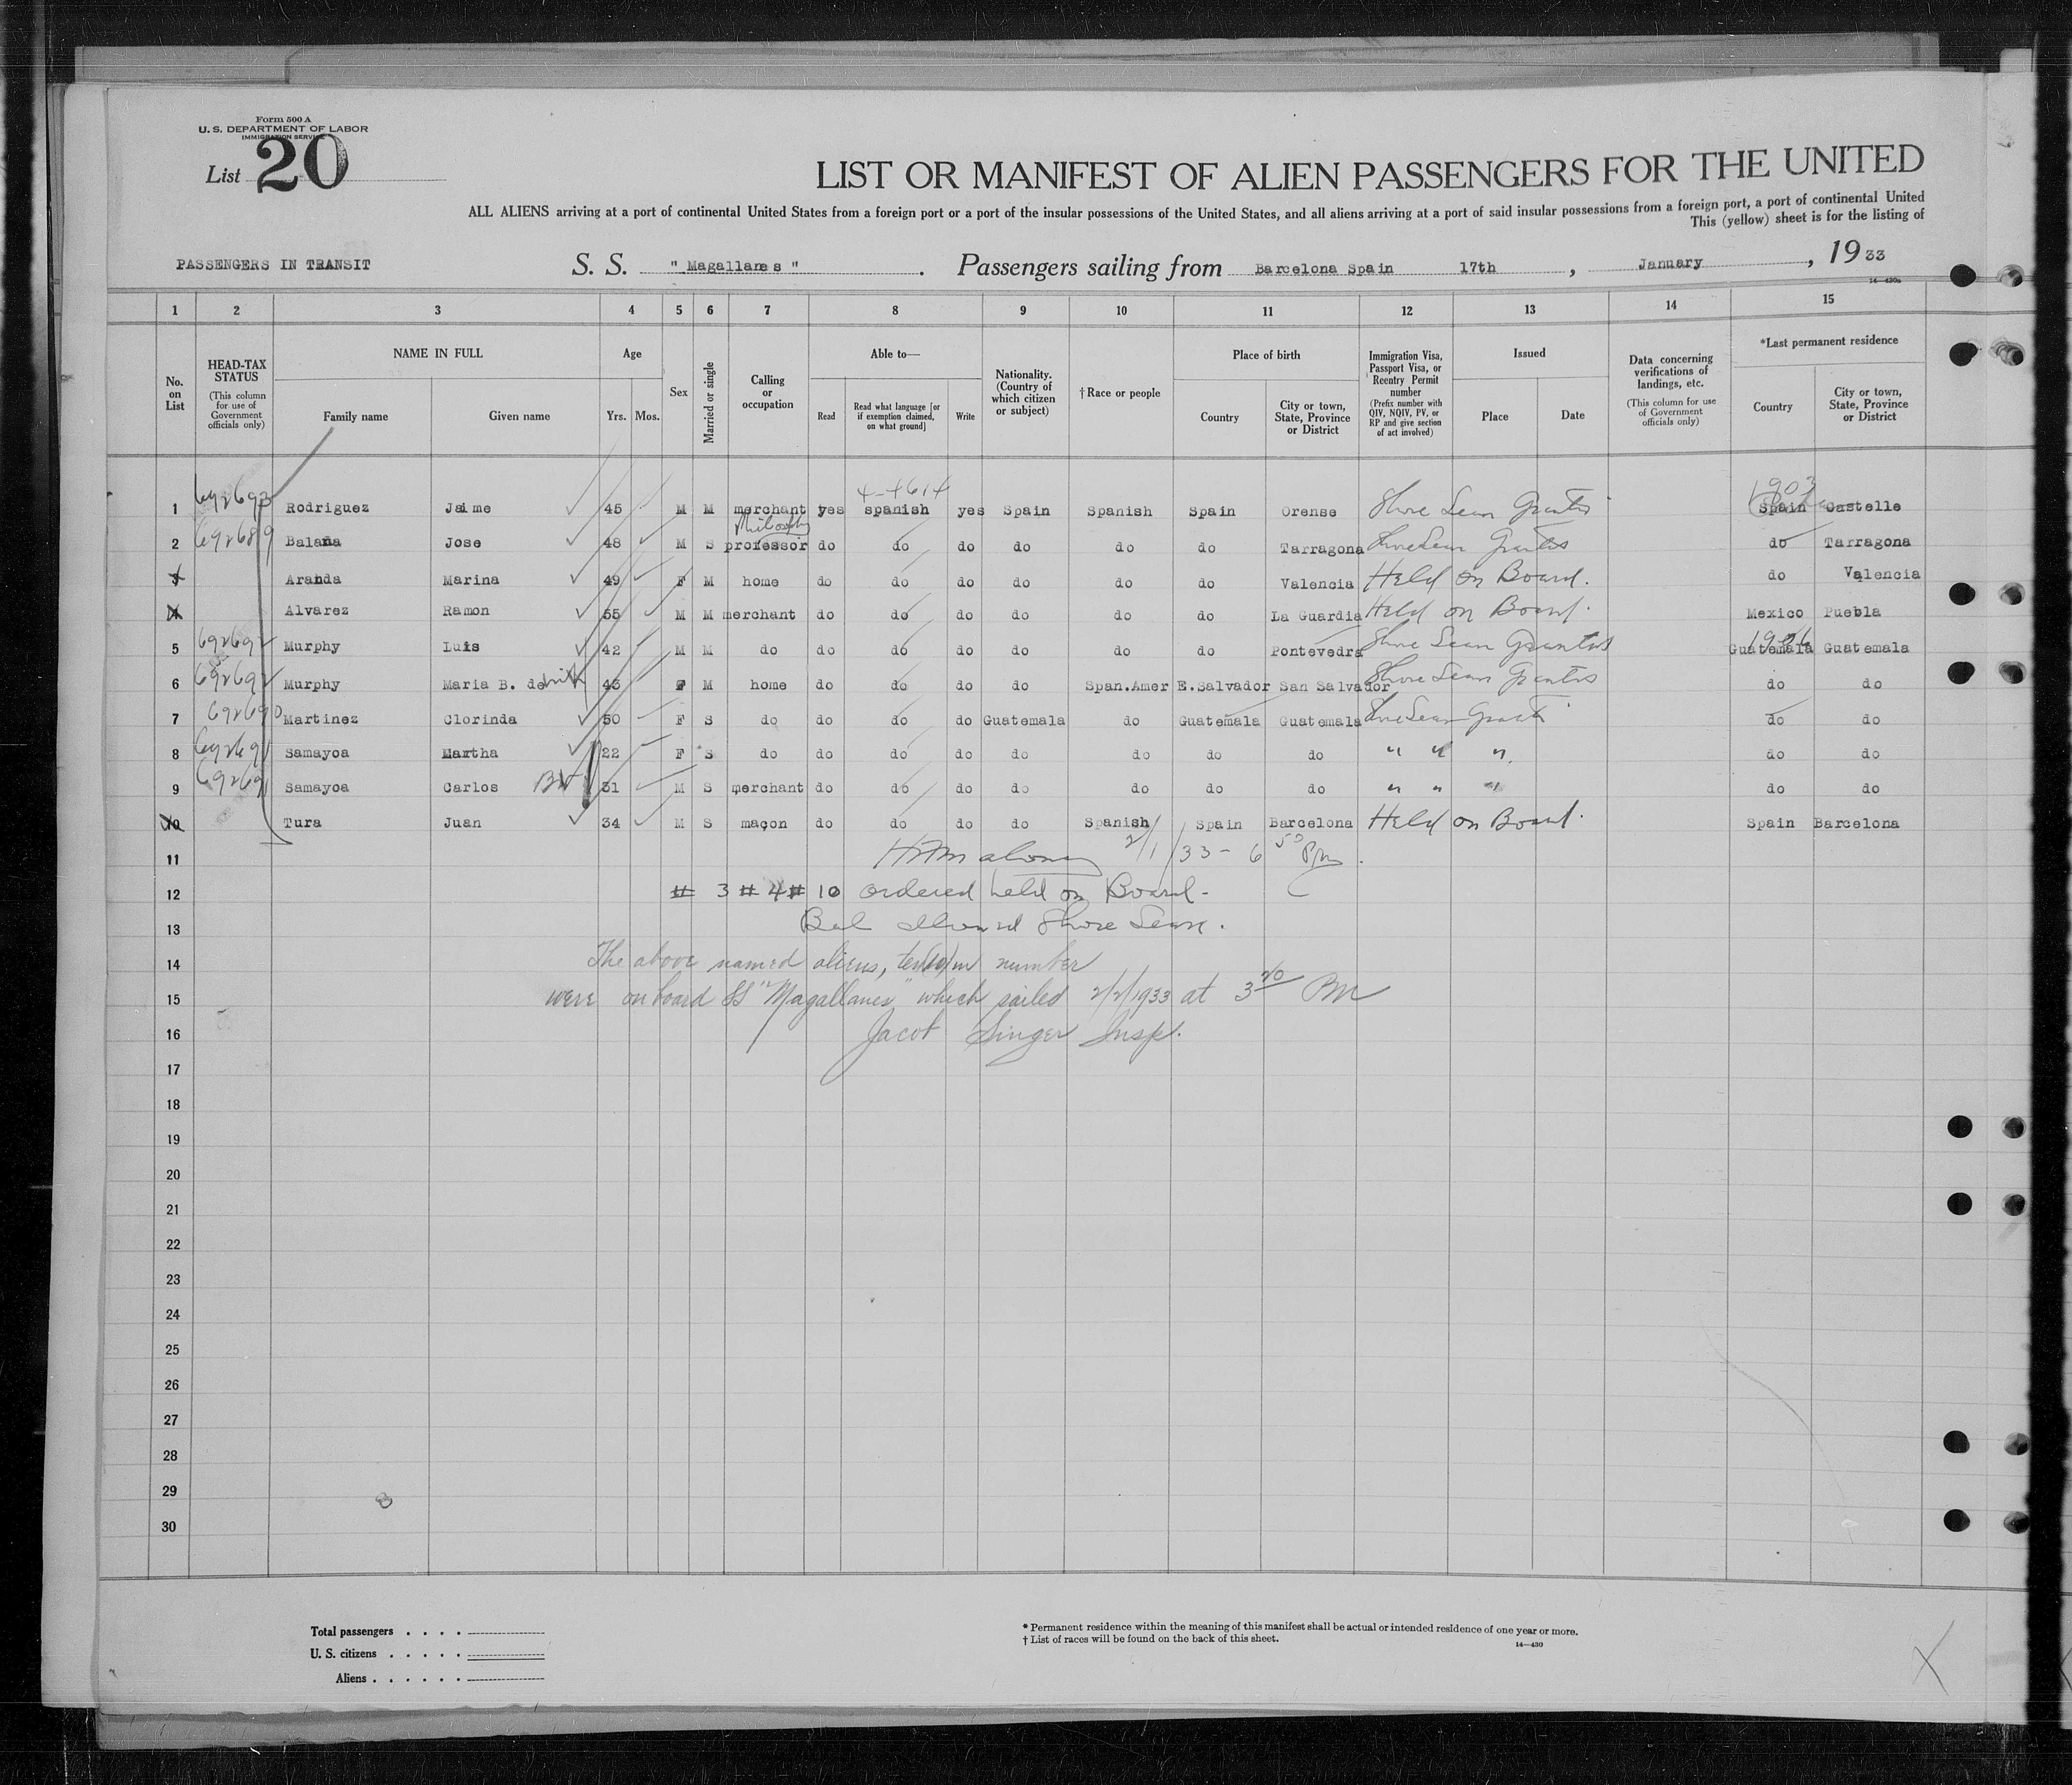 Form 500 A
U. S. DEPARTMENT OF LABOR
IMMIGRATION SERVICE
List 20
LIST OR MANIFEST OF ALIEN PASSENGERS FOR THE UNITED
ALL ALIENS arriving at a port of continental United States from a foreign port or a port of the insular possessions of the United States, and all aliens arriving at a port of said insular possessions from a foreign port, a port of continental United
This (yellow) sheet is for the listing of
PASSENGERS IN TRANSIT S. S. " Magallanes " . Passengers sailing from Barcelona Spain 17th , January , 19 33
14—430a
1 2 3 4 5 6 7 8 9 10 11 12 13 14 15
No. on List
HEAD-TAX STATUS (This column for use of Government officials only)
NAME IN FULL Family name Given name
Age Yrs. Mos.
Sex
Married or single
Calling or occupation
Able to— Read Read what language [or if exemption claimed, on what ground] Write
Nationality. (Country of which citizen or subject)
† Race or people
Place of birth Country City or town, State, Province or District
Immigration Visa, Passport Visa, or Reentry Permit number (Prefix number with QIV, NQIV, PV, or RP and give section of act involved)
Issued Place Date
Data concerning verifications of landings, etc. (This column for use of Government officials only)
*Last permanent residence Country City or town, State, Province or District
4-4614 1903
1 692693 Rodriguez Jaime 45 M M merchant yes spanish yes Spain Spanish Spain Orense Shore Leave Granted Spain Castelle
Philosophy
2 692689 Balana Jose 48 M S professor do do do do do do Tarragona Shore Leave Granted do Tarragona
3 Aranda Marina 49 F M home do do do do do do Valencia Held on Board. do Valencia
4 Alvarez Ramon 55 M M merchant do do do do do do La Guardia Held on Board. Mexico Puebla
1926
5 692692 Murphy Luis 42 M M do do do do do do do Pontevedra Shore Leave Granted Guatemala Guatemala
6 692692 Murphy Maria B. de wife 43 F M home do do do do Span.Amer E.Salvador San Salvador Shore Leave Granted do do
7 692690 Martinez Clorinda 50 F S do do do do Guatemala do Guatemala Guatemala Shore Leave Granted do do
8 692691 Samayoa Martha 22 F S do do do do do do do do " " " do do
9 692691 Samayoa Carlos 31 M S merchant do do do do do do do " " " do do
10 Tura Juan 34 M S maçon do do do do Spanish Spain Barcelona Held on Board. Spain Barcelona
11 2/1/33 - 6 50 Pm.
12 # 3 # 4 # 10 ordered held on Board-
13 Bal allowed Shore Leave.
14 The above named aliens, ten(10) in number
15 were on board SS "Magallanes" which sailed 2/2/1933 at 3 20 PM
16 Jacob Singer Insp.
17
18
19
20
21
22
23
24
25
26
27
28
29
30
Total passengers . . . .
U. S. citizens . . . . .
Aliens . . . . . .
* Permanent residence within the meaning of this manifest shall be actual or intended residence of one year or more.
† List of races will be found on the back of this sheet.
14—430